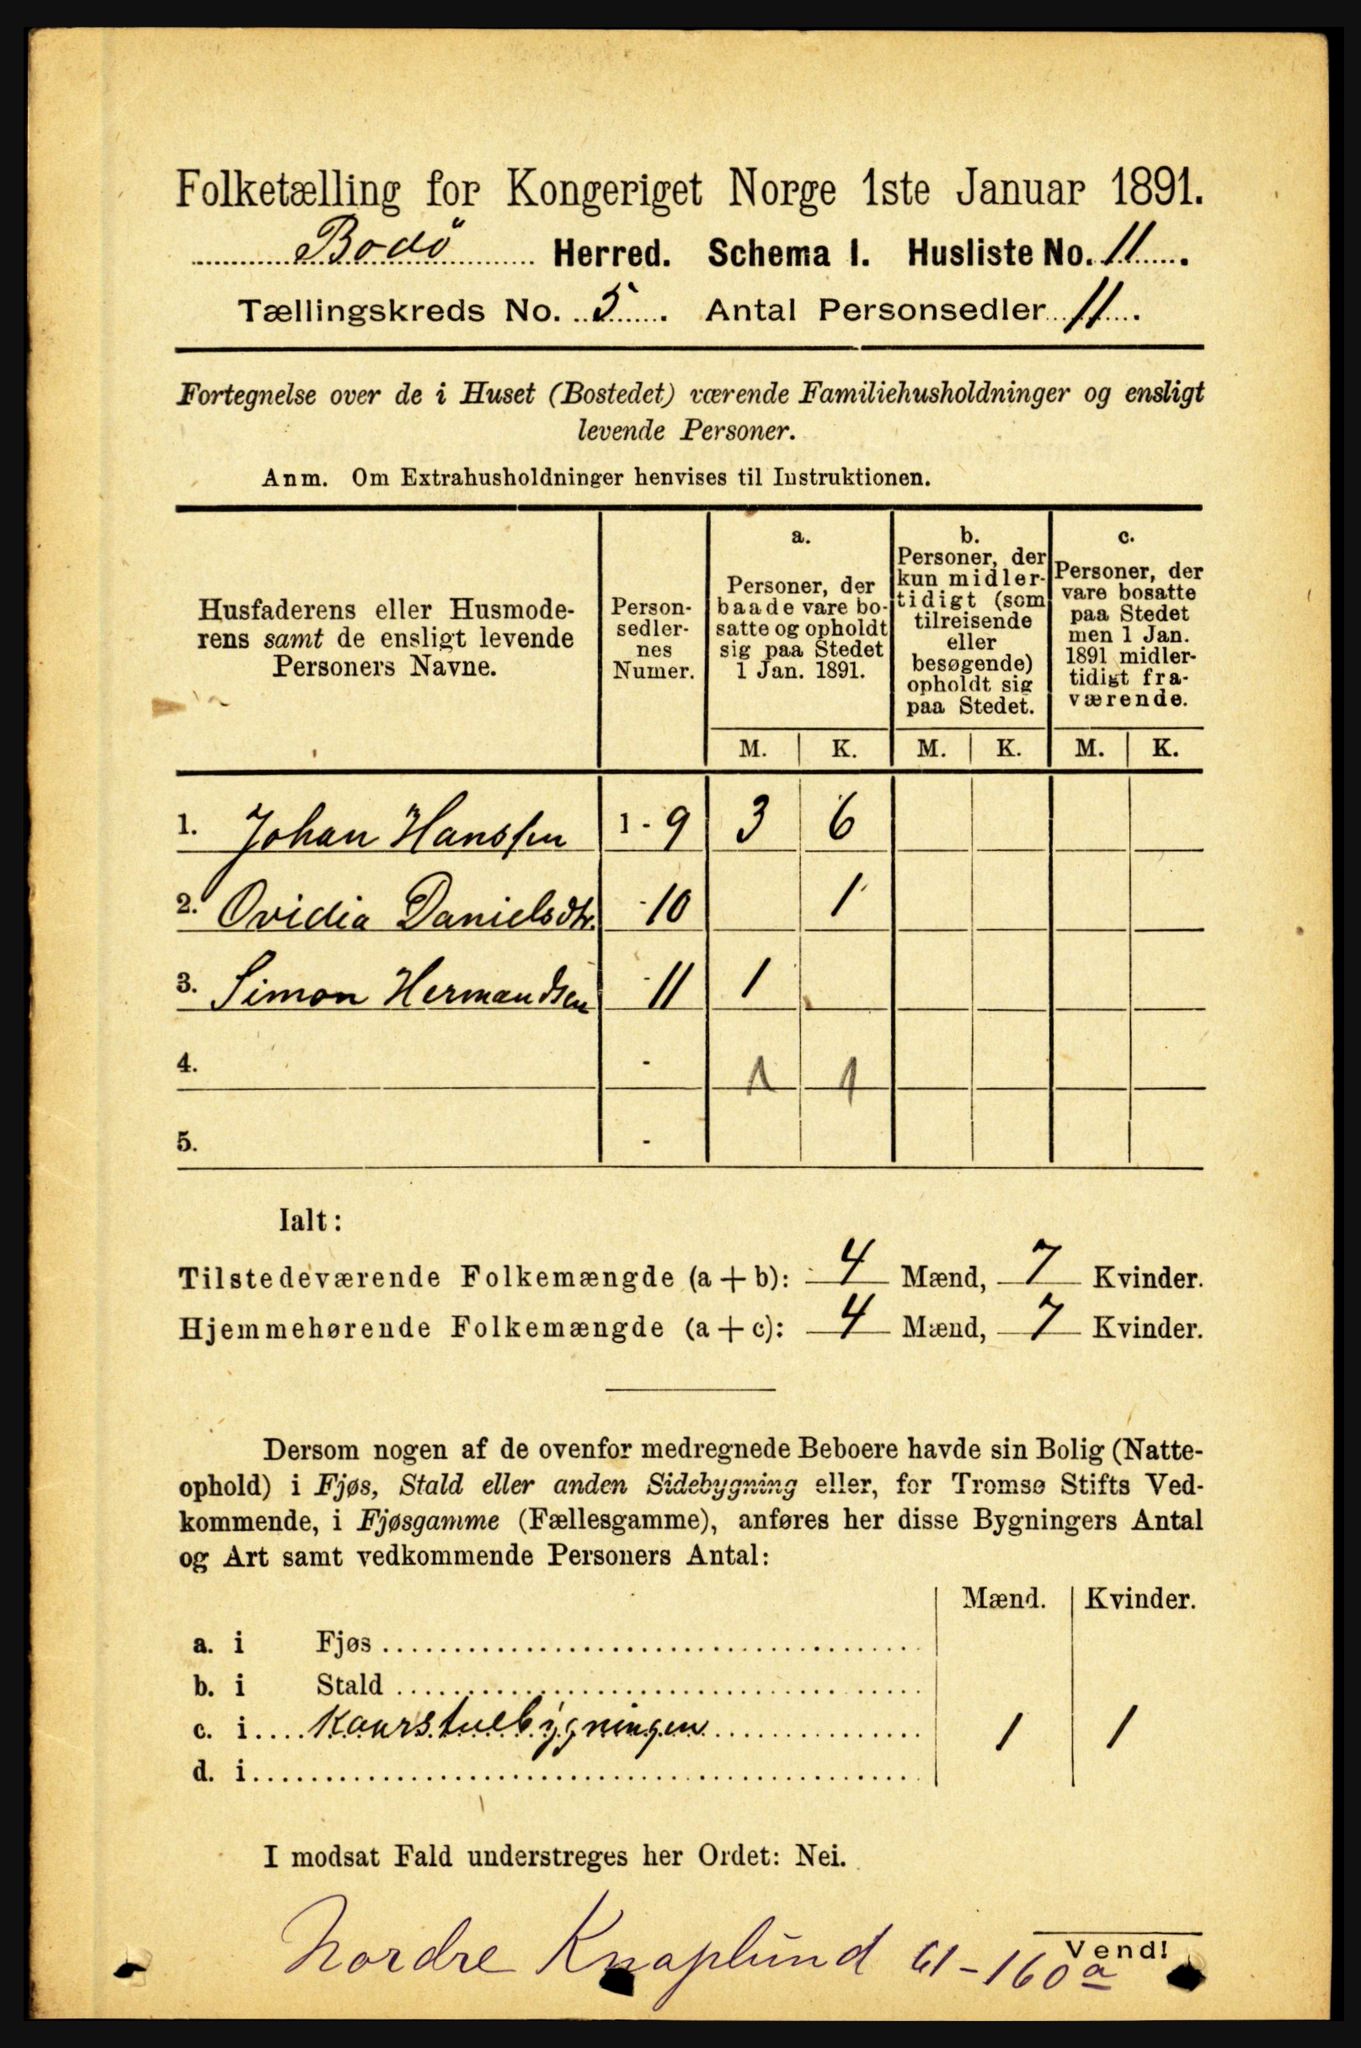 Folketælling for Kongeriget Norge 1ste Januar 1891.
Bodø Herred. Schema I. Husliste No. 11.
Tællingskreds No. 5. Antal Personsedler 11.
Fortegnelse over de i Huset (Bostedet) værende Familiehusholdninger og ensligt
levende Personer.
Anm. Om Extrahusholdninger henvises til Instruktionen.
Husfaderens eller Husmode-
rens samt de ensligt levende
Personers Navne.
Person-
sedler-
nes
Numer.
a.
Personer, der
baade vare bo-
satte og opholdt
sig paa Stedet
1 Jan. 1891.
b.
Personer, der
kun midler-
tidigt (som
tilreisende
eller
besøgende)
opholdt sig
paa Stedet.
c.
Personer, der
vare bosatte
paa Stedet
men 1 Jan.
1891 midler-
tidigt fra-
værende.
M. K. M. K. M. K.
1. Johan Hanssen 1 - 9 3 6
2. Ovidia Danielsdtr. - 10 1
3. Simon Hermandsen - 11 1
4. - 1 1
5. -
Ialt:
Tilstedeværende Folkemængde (a + b): 4 Mænd, 7 Kvinder.
Hjemmehørende Folkemængde (a + c): 4 Mænd, 7 Kvinder.
Dersom nogen af de ovenfor medregnede Beboere havde sin Bolig (Natte-
ophold) i Fjøs, Stald eller anden Sidebygning eller, for Tromsø Stifts Ved-
kommende, i Fjøsgamme (Fællesgamme), anføres her disse Bygningers Antal
og Art samt vedkommende Personers Antal:
Mænd. Kvinder.
a. i Fjøs
b. i Stald
c. i Kaarstuebygningen 1 1
d. i
I modsat Fald understreges her Ordet: Nei.
Vend!
Nordre Knaplund 61-160a